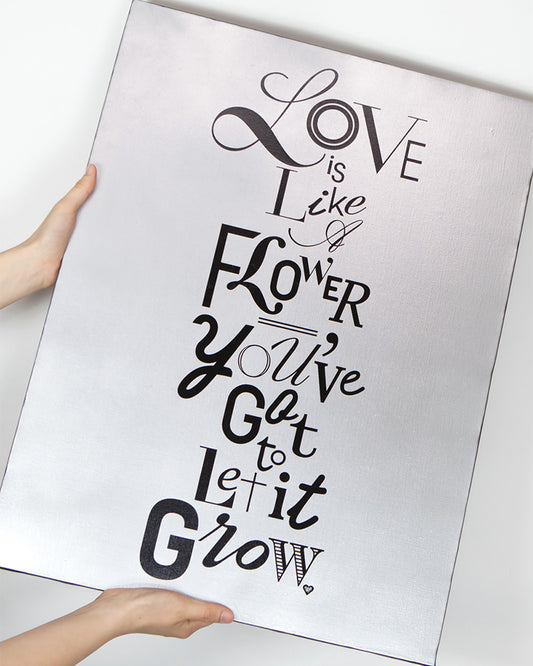 LOVE
is
Like
A
FLOWER
You've
Got
to
Let it
Grow.